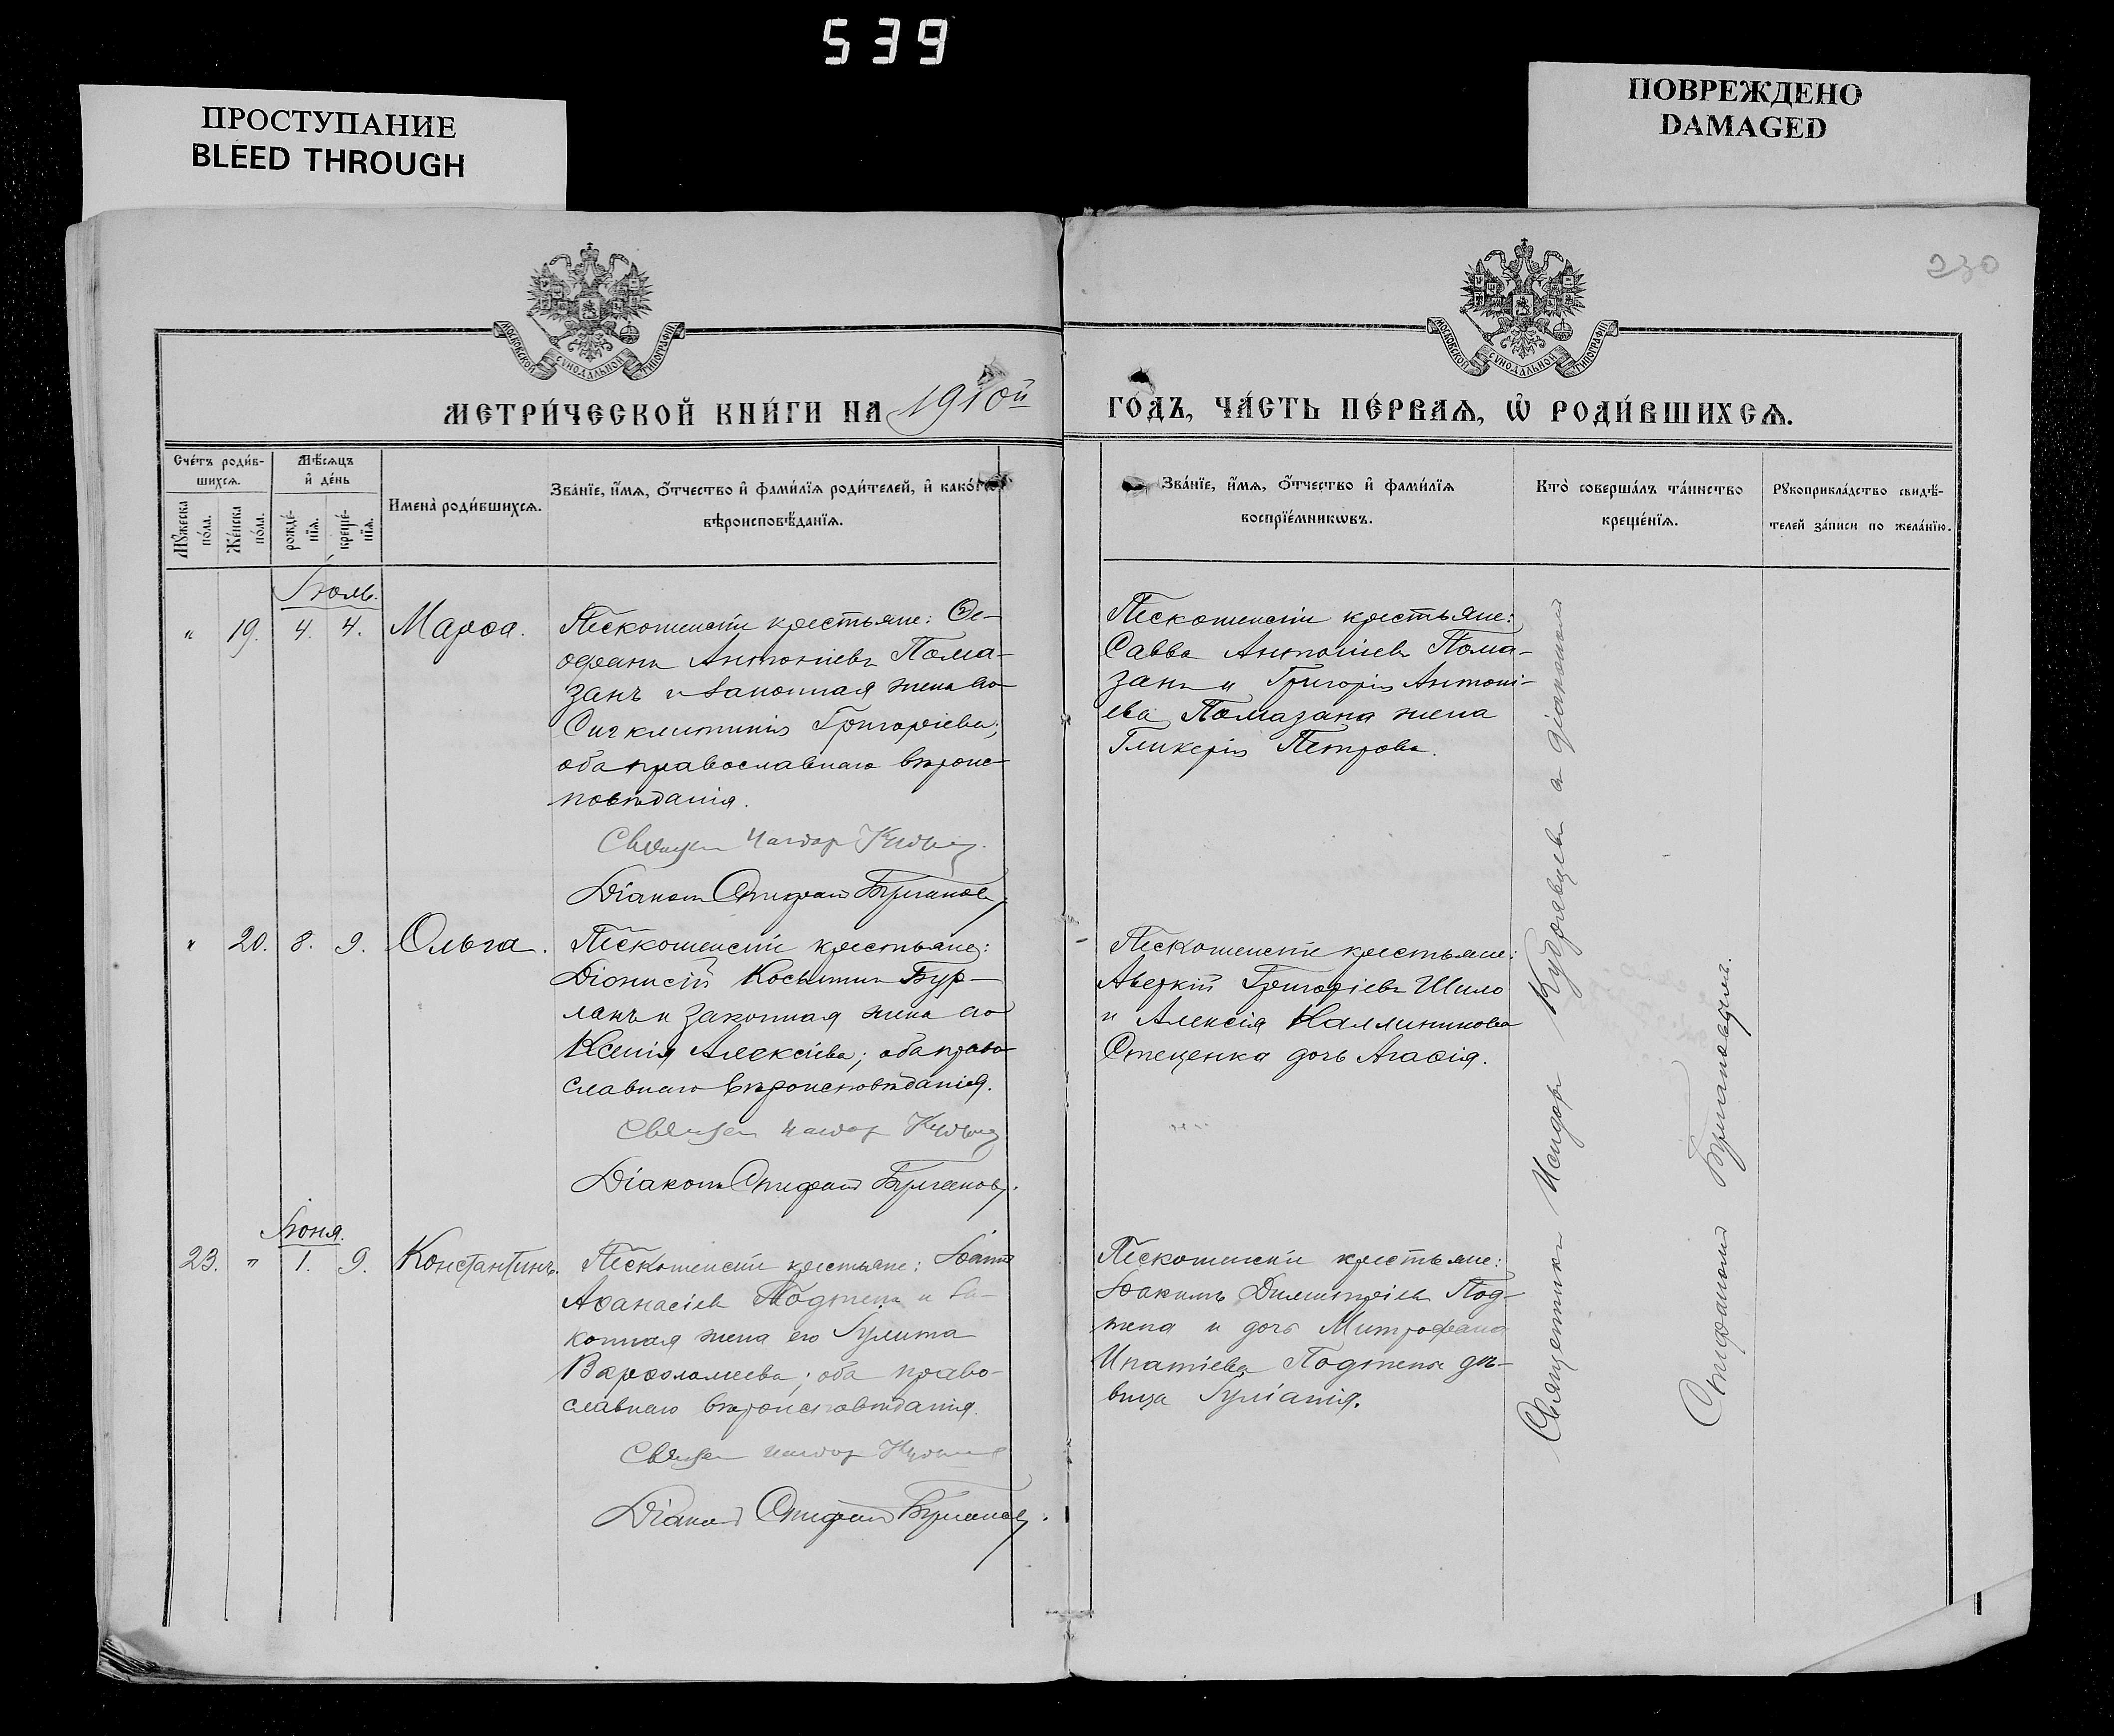 539
ПРОСТУПАНИЕ
BLEED THROUGH
ПОВРЕЖДЕНО
DAMAGED
230
МОСКОВСКОЙ СѴНОДАЛЬНОЙ ТИПОГРАФІИ
МОСКОВСКОЙ СѴНОДАЛЬНОЙ ТИПОГРАФІИ
МЕТРИ́ЧЕСКОЙ КНИ́ГИ НА 1910й
ГО́ДЪ, ЧА́СТЬ ПЕ́РВАѦ, Ѿ РОДИ́ВШИХСѦ.
Сче́тъ роди́в-
шихсѧ.
Мꙋ́жеска
по́ла.
Же́нска
по́ла.
Мѣ́сѧцъ
и҆ де́нь
рожде́-
нїѧ.
креще́-
нїѧ.
Имена̀ роди́вшихсѧ.
Зва́нїе, и҆́мѧ, ѻ҆́тчество и҆ фами́лїѧ роди́телей, и҆ како́гѡ
вѣроисповѣ́данїѧ.
Зва́нїе, и҆́мѧ, ѻ҆́тчество и҆ фами́лїѧ
воспрїе́мникѡвъ.
Кто̀ соверша́лъ та́инство
креще́нїѧ.
Рꙋкоприкла́дство свидѣ́-
телей за́писи по жела́нїю.
Іюль.
" 19. 4. 4. Марѳа.
Пескошенскіи крестьяне: Ѳе-
офанъ Антоніевъ Пома-
занъ и законная жена его
Сигклитикія Григоріева;
оба православнаго вѣроис-
повѣданія.
Священ Исидор Кудрявц
Діаконъ Стефанъ Бугмановъ
Пескошенскіи крестьяне:
Савва Антоніевъ Пома-
занъ и Григорія Антоні-
ева Помазана жена
Гликерія Петрова.
" 20. 8. 9. Ольга.
Пескошенскіи крестьяне:
Діонисій Косьминъ Бур-
ланъ и законная жена его
Ксенія Алексіева; оба право-
славнаго вѣроисповѣданія.
Священ Исидор Кудрявц
Діаконъ Стефанъ
Пескошенскіи крестьяне:
Аверкій Григоріевъ Шило
и Алексія Каллиникова
Стеценка дочь Агаѳія.
Іюня.
23. " 1. 9. Константинъ.
Пескошенскіи крестьяне: Іоаннъ
Аѳанасіевъ Подтепа и за-
конная жена его Іулита
Варѳоломеева; оба право-
славнаго вѣроисповѣданія.
Священ Исидор Кудрявц
Діаконъ Стефанъ
Пескошенскіи крестьяне:
Іоакимъ Димитріевъ Под-
тепа и дочь Митрофана
Ипатіева Подтепы дѣ-
вица Іуліанія.
Священникъ Исидоръ Кудрявцевъ съ діакономъ
Стефаномъ